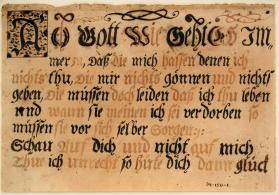 Ach Gott Wie Geht Es Im
mer zu, Daß die mich hassen denen ich
nichts thu, Die mir nichts gönnen und nicht
geben, Die müssen doch leiden daß ich thu leben
und wann sie meinen ich sei verdorben so
müssen sie vor sich selber Sorgen:
Schau Auf Dich und nicht auf mich
Thue ich unrecht so hüte Dich dann glück